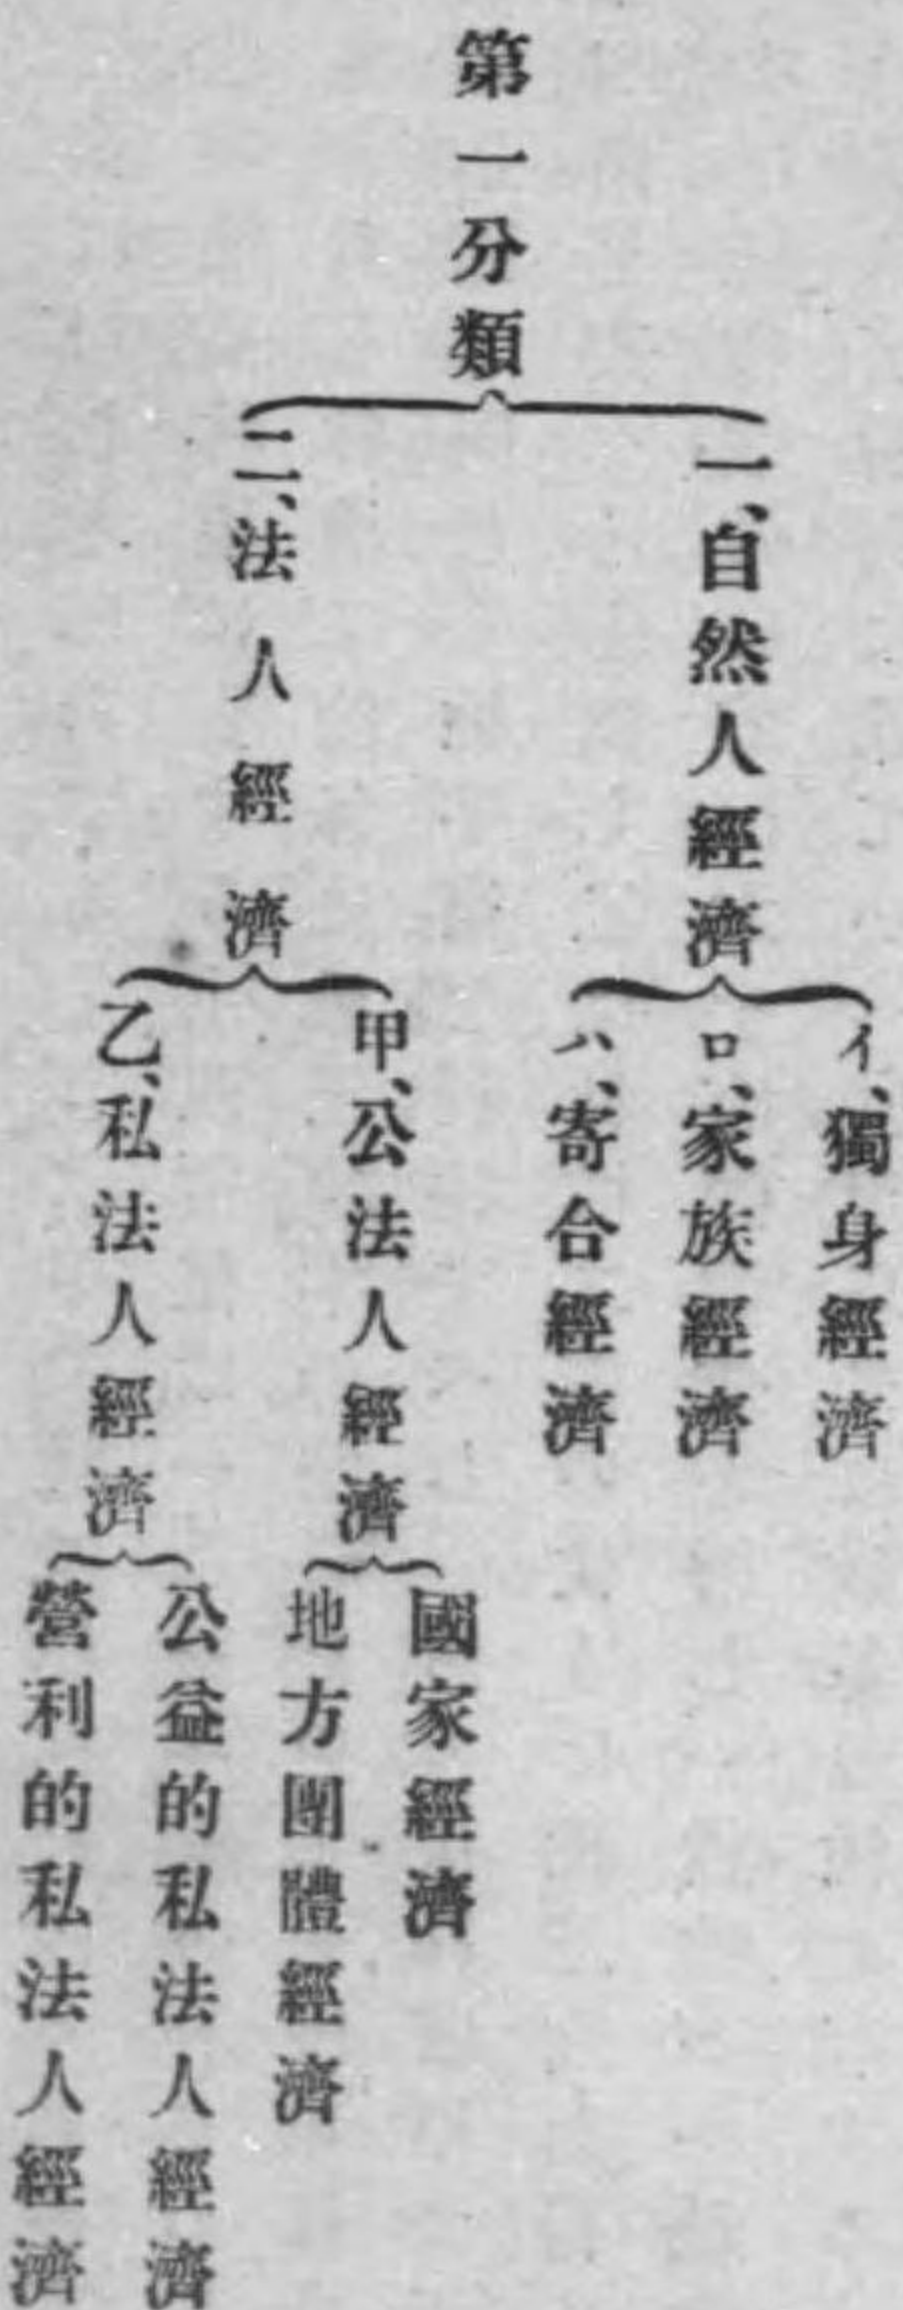 第一分類
一、自然人經濟
イ、獨身經濟
ロ、家族經濟
ハ、寄合經濟
二、法人經濟
甲、公法人經濟
國家經濟
地方團體經濟
乙、私法人經濟
公益的私法人經濟
營利的私法人經濟